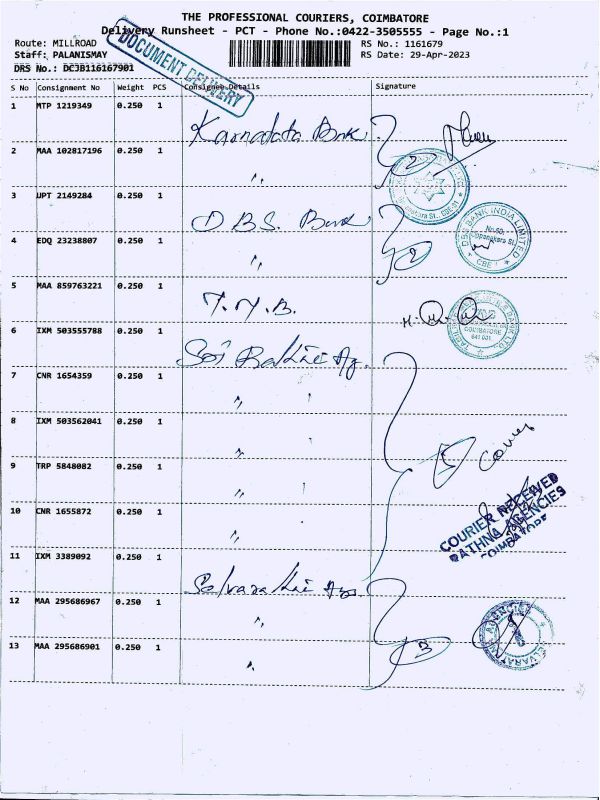 THE PROFESSIONAL COURIERS, COIMBATORE
Delivery Runsheet - PCT - Phone No.:0422-3505555 - Page No.:1
Route: MILLROAD
RS No.: 1161679
Staff: PALANISMAY
RS Date: 29-Apr-2023
DRS No.: DCJB116167901
DOCUMENT DELIVERY
S No Consignment No Weight PCS Consignee Details Signature
1 MTP 1219349 0.250 1 Karnataka Bnk
2 MAA 102817196 0.250 1 " 2
3 UPT 2149284 0.250 1 DBS. Bank
DBS BANK INDIA LIMITED
4 EDQ 23238807 0.250 1 " 2
5 MAA 859763221 0.250 1 T.M.B.
COIMBATORE
641 001
6 IXM 503555788 0.250 1
7 CNR 1654359 0.250 1 "
8 IXM 503562041 0.250 1 "
9 TRP 5848082 0.250 1 "
10 CNR 1655872 0.250 1 "
COURIER RECEIVED
RATHNA AGENCIES
COIMBATORE
11 IXM 3389092 0.250 1
12 MAA 295686967 0.250 1 "
13 MAA 295686901 0.250 1 " 3